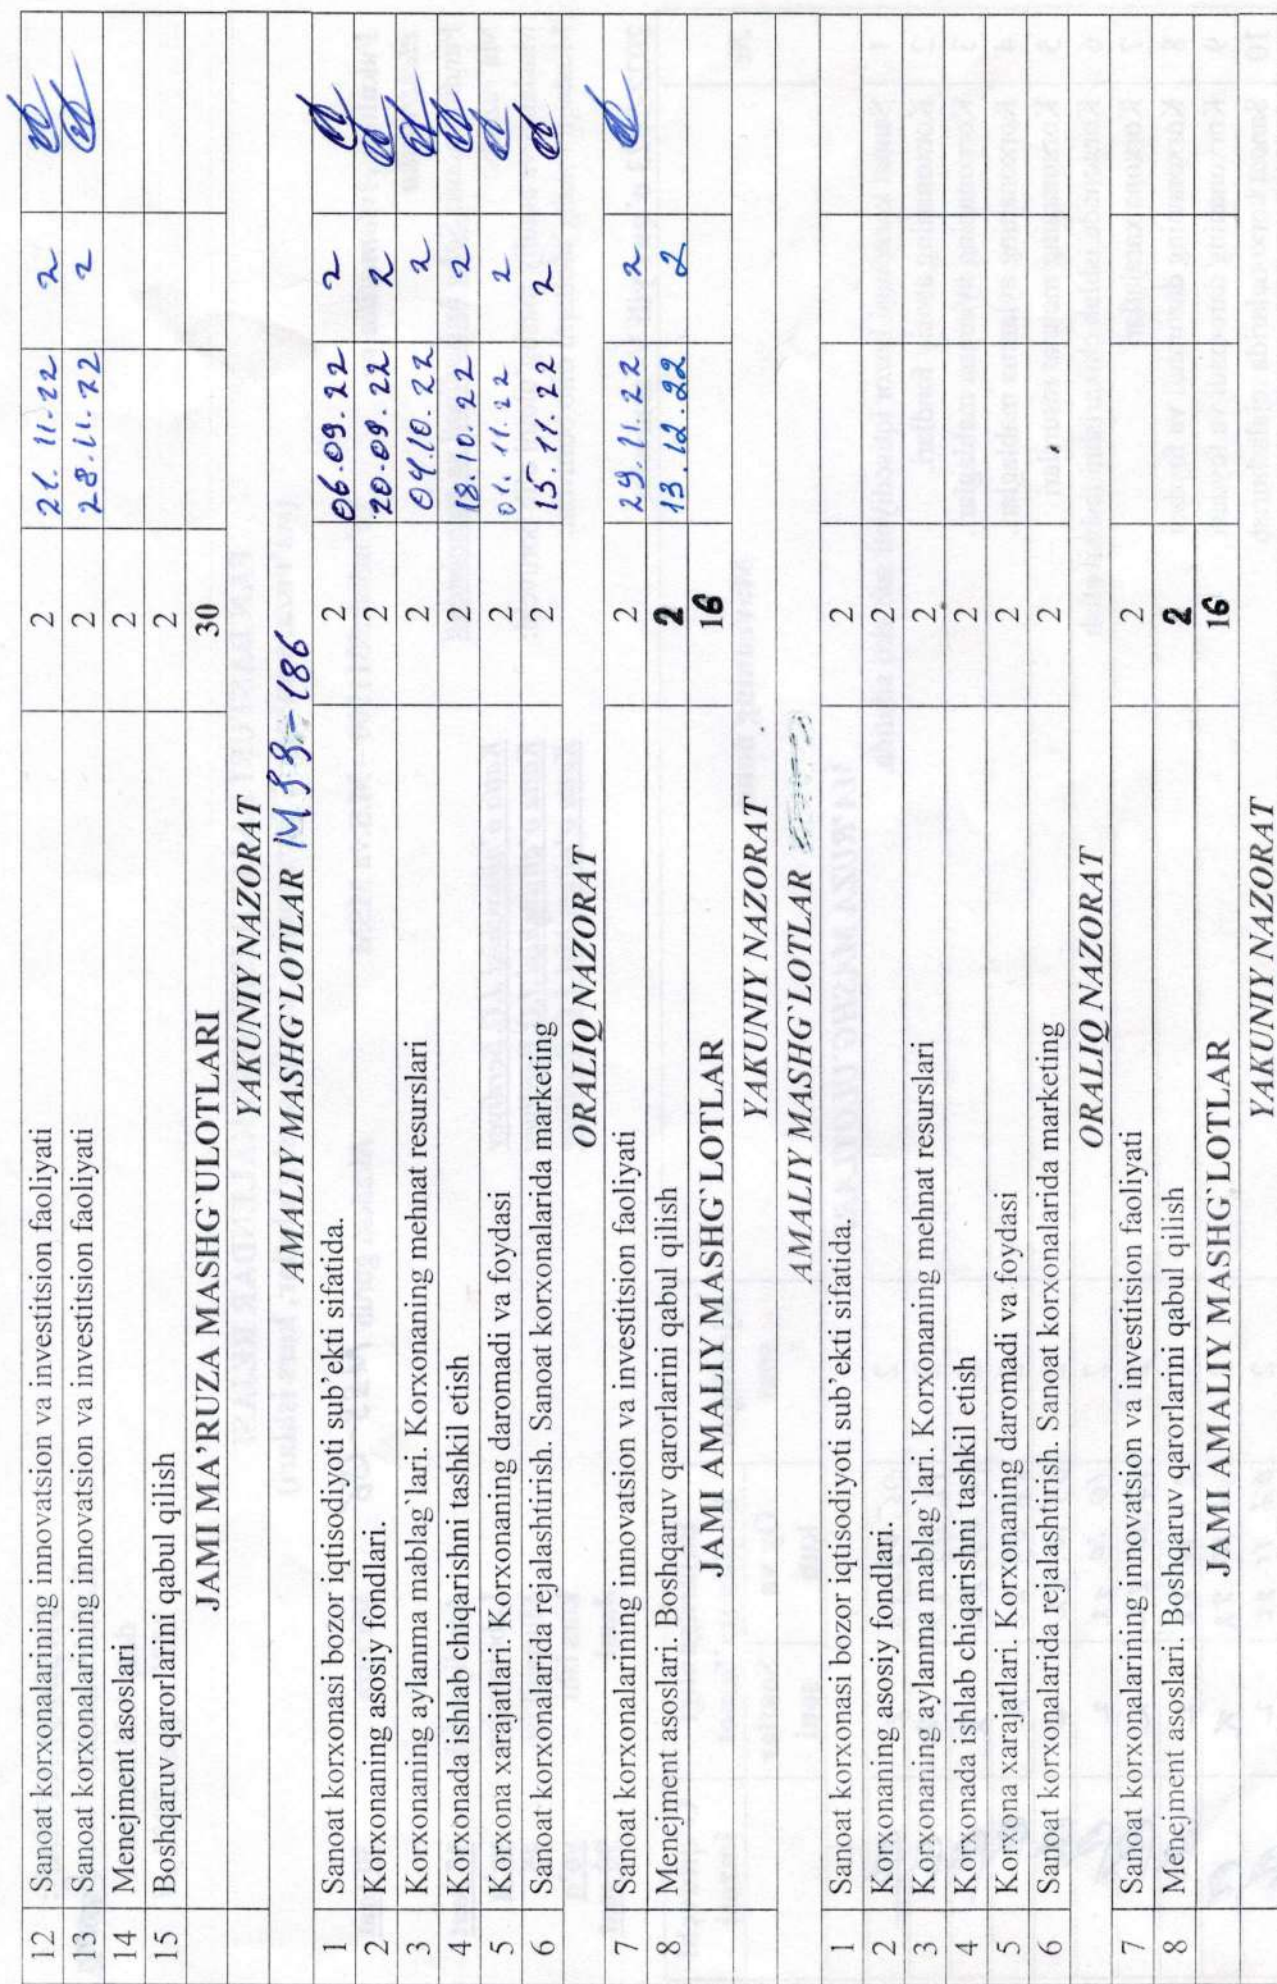 12 Sanoat korxonalarining innovatsion va investitsion faoliyati 2 21.11.22 2
13 Sanoat korxonalarining innovatsion va investitsion faoliyati 2 28.11.22 2
14 Menejment asoslari 2
15 Boshqaruv qarorlarini qabul qilish 2
JAMI MA’RUZA MASHG`ULOTLARI 30
YAKUNIY NAZORAT
AMALIY MASHG`LOTLAR 186
1 Sanoat korxonasi bozor iqtisodiyoti sub’ekti sifatida. 2 06.09.22 2
2 Korxonaning asosiy fondlari. 2 20.09.22 2
3 Korxonaning aylanma mablag`lari. Korxonaning mehnat resurslari 2 04.10.22 2
4 Korxonada ishlab chiqarishni tashkil etish 2 18.10.22 2
5 Korxona xarajatlari. Korxonaning daromadi va foydasi 2 01.11.22 2
6 Sanoat korxonalarida rejalashtirish. Sanoat korxonalarida marketing 2 15.11.22 2
ORALIQ NAZORAT
7 Sanoat korxonalarining innovatsion va investitsion faoliyati 2 29.11.22 2
8 Menejment asoslari. Boshqaruv qarorlarini qabul qilish 2 13.12.22 2
JAMI AMALIY MASHG`LOTLAR 16
YAKUNIY NAZORAT
AMALIY MASHG`LOTLAR
1 Sanoat korxonasi bozor iqtisodiyoti sub’ekti sifatida. 2
2 Korxonaning asosiy fondlari. 2
3 Korxonaning aylanma mablag`lari. Korxonaning mehnat resurslari 2
4 Korxonada ishlab chiqarishni tashkil etish 2
5 Korxona xarajatlari. Korxonaning daromadi va foydasi 2
6 Sanoat korxonalarida rejalashtirish. Sanoat korxonalarida marketing 2
ORALIQ NAZORAT
7 Sanoat korxonalarining innovatsion va investitsion faoliyati 2
8 Menejment asoslari. Boshqaruv qarorlarini qabul qilish 2
JAMI AMALIY MASHG`LOTLAR 16
YAKUNIY NAZORAT